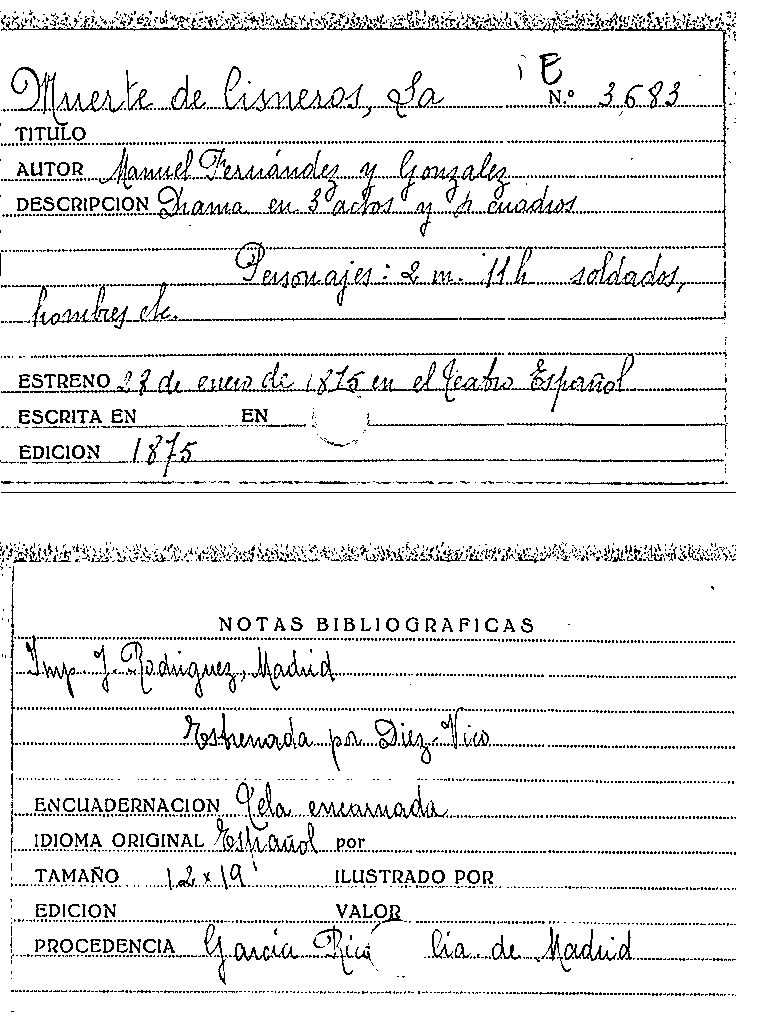 E
Muerte de Cisneros, La N.º 3,683
TITULO
AUTOR Manuel Fernández y Gonzalez
DESCRIPCION Drama en 3 actos y 4 cuadros
Personajes: 2 m. 11 h soldados,
hombres etc.
ESTRENO de enero de 1875 en el Teatro Español
ESCRITA EN EN
EDICION 1875
NOTAS BIBLIOGRAFICAS
Imp. J. Rodriguez, Madrid
Estrenada por Diez-Vico
ENCUADERNACION Tela encarnada
IDIOMA ORIGINAL Español por
TAMAÑO 12 x 19 ILUSTRADO POR
EDICION VALOR
PROCEDENCIA García Rico Cia. de Madrid